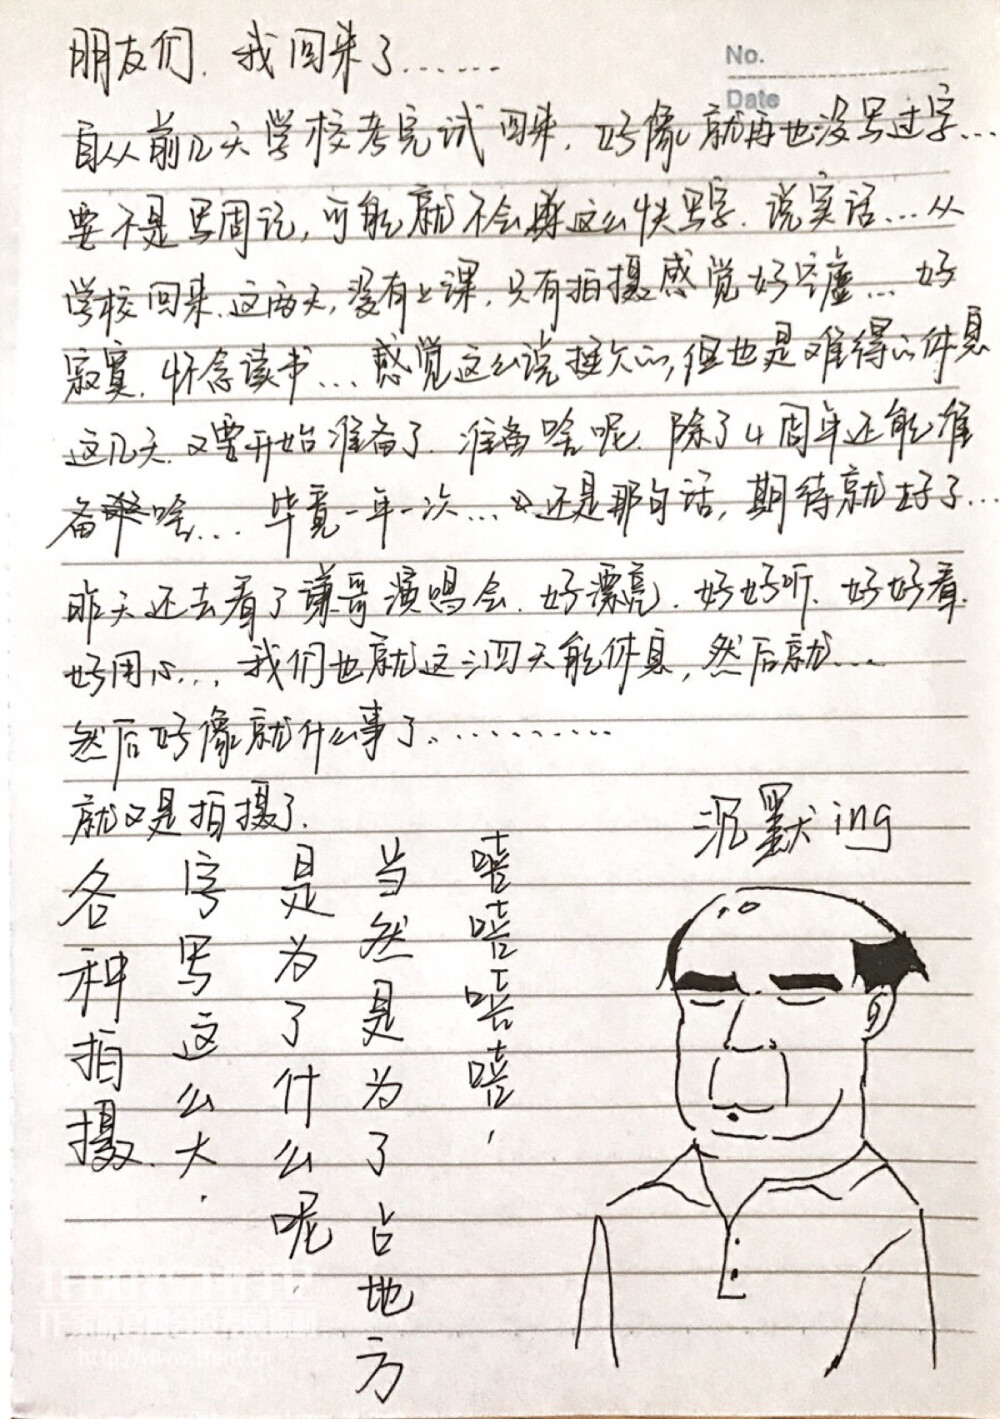 朋友们. 我回来了......
No.
Date
自从前几天学校考完试回来. 好像就再也没写过字...
要不是写周记, 可能就不会这么快写字. 说实话...从
学校回来.这两天,没有上课.只有拍摄感觉好空虚...好
寂寞.怀念读书....感觉这么说挺欠的,但也是难得的休息
这几天.又要开始准备了.准备啥呢.除了4周年还能准
备啥.... 毕竟一年一次....还是那句话,期待就好了...
昨天还去看了谦哥演唱会.好漂亮.好好听.好好看.
好用心... 我们也就这三四天能休息,然后就....
然后好像就什么事了...........
就又是拍摄了.
各种拍摄.
字写这么大.
是为了什么呢.
当然是为了占地方
嘻嘻嘻嘻,
沉默ing
http://www.tfent.cn